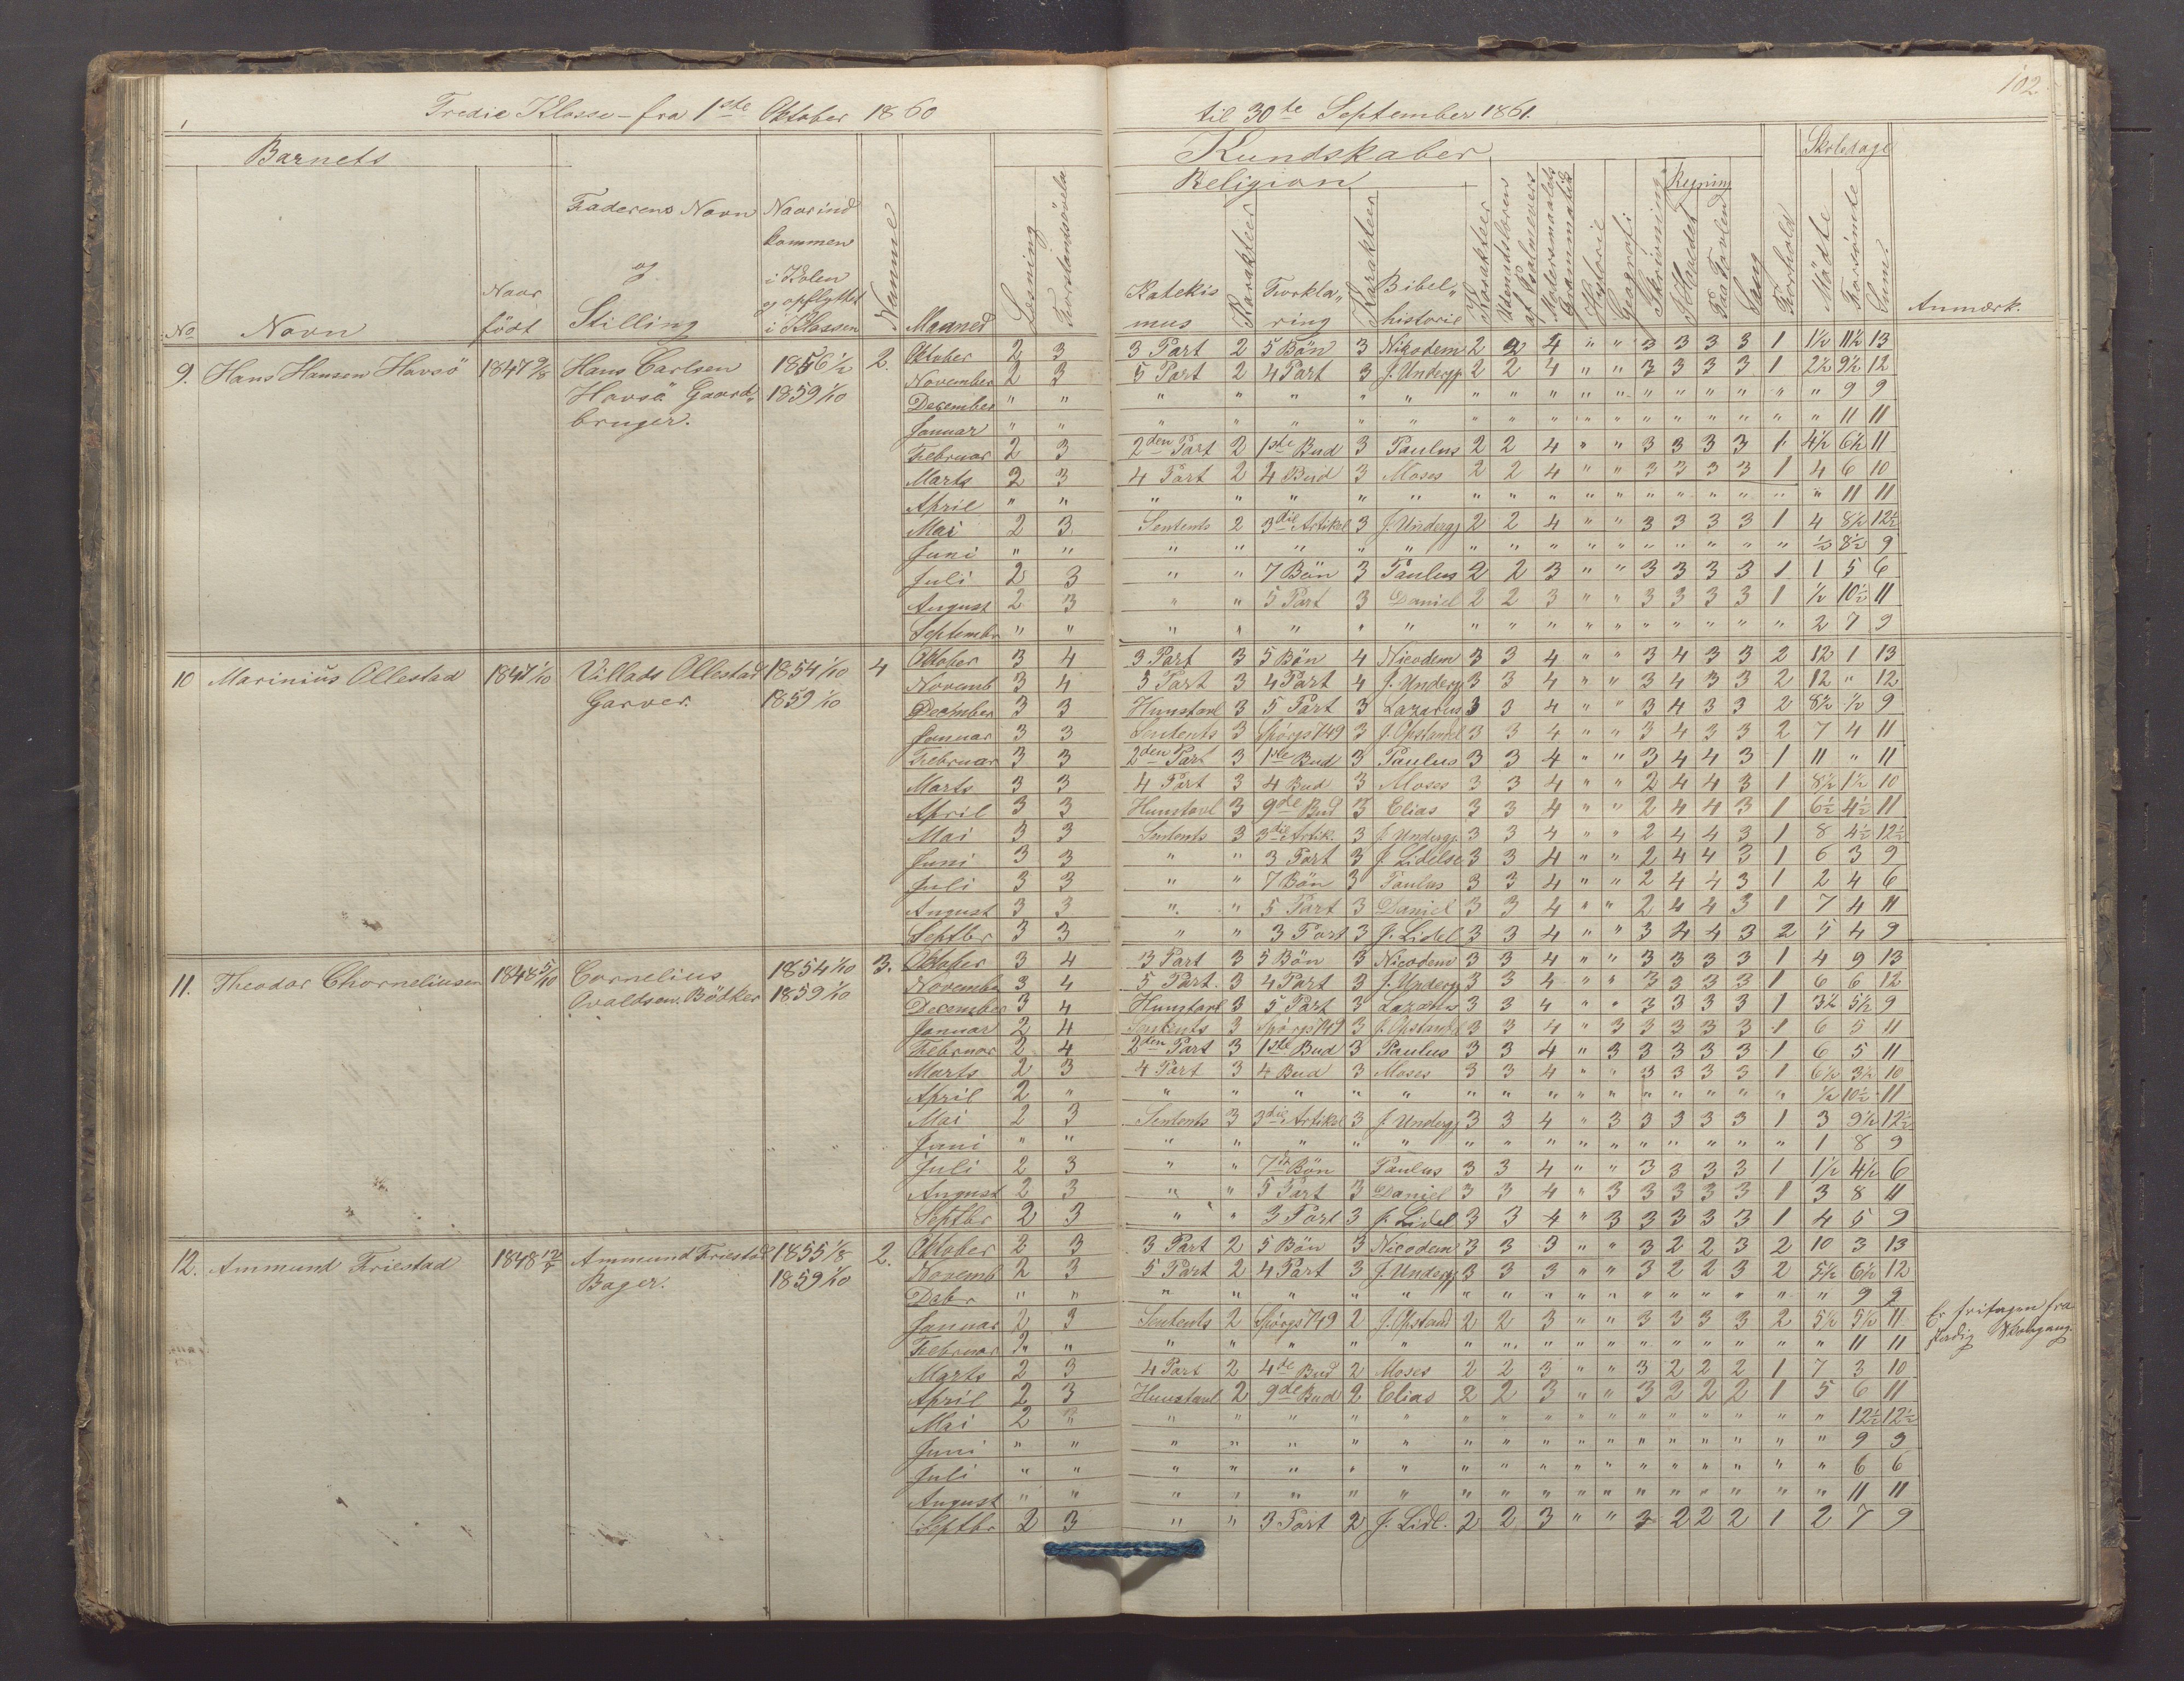 102
Tredie Klasse - fra 1ste Oktober 1860 til 30te September 1861.
Barnets Kundskaber Skoledage
Religion Regning
No Navn Naar født Faderens Navn og Stilling Naar ind kommen i Skolen og opflyttet i Klassen Numme Maaned Læsning Forstandsøvels Katekis mus Karakteer Forkla„ ring Karakteer Bibel„ historie Karakteer Udenadslæren af Psalmevers Modersmaalets Grammatik Historie Geografi Skrivning I Hovedet Paa Tavlen Sang Forhold Mødte Forsømte Sum Anmærk.
9. Hans Hansen Havsö 1847 9/8 Hans Carlsen 1856 1/2 2. Oktober 2 3 3 Part 2 5 Bön 3 Nikodem 2 2 4 " " 3 3 3 3 1 1½ 11½ 13
Havsö Gaard„ 1859 1/10 November 2 3 5 Part 2 4 Part 3 J. Underg 2 2 4 " " 3 3 3 3 1 2½ 9½ 12
bruger. December " " " " " " " " " " " " " " " " " " 9 9
Januar " " " " " " " " " " " " " " " " " " 11 11
Februar 2 3 2den Part 2 1ste Bud 3 Paulus 2 2 4 " " 3 3 3 3 1 4½ 6½ 11
Marts 2 3 4 Part 2 4 Bud 3 Moses 2 2 4 " " 3 3 3 3 1 4 6 10
April " " " " " " " " " " " " " " " " " " 11 11
Mai 2 3 Sentents 2 3die Artikel 3 J. Underg 2 2 4 " " 3 3 3 3 1 4 8½ 12½
Juni " " " " " " " " " " " " " " " " " ½ 8½ 9
Juli 2 3 " " 7 Bön 3 Paulus 2 2 3 " " 3 3 3 3 1 1 5 6
August 2 3 " " 5 Part 3 Daniel 2 2 3 " " 3 3 3 3 1 ½ 10½ 11
Septembr " " " " " " " " " " " " " " " " " 2 7 9
10 Marinius Ollestad 1847 1/10 Villads Ollestad 1854 1/10 4 Oktober 3 4 3 Part 3 5 Bön 4 Nicodem 3 3 4 " " 3 4 3 3 2 12 1 13
Garver. 1859 1/10 Novemb 3 4 5 Part 3 4 Part 4 J. Underg 3 3 4 " " 3 4 3 3 2 12 " 12
December 3 3 Hunstavl 3 5 Part 3 Lazarus 3 3 4 " " 3 4 3 3 2 8½ ½ 9
Januar 3 3 Sentents 3 Spörgs 749 3 J. Opstand 3 3 4 " " 3 4 3 3 2 7 4 11
Februar 3 3 2den Part 3 1ste Bud 3 Paulus 3 3 4 " " 3 4 4 3 1 11 " 11
Marts 3 3 4 Part 3 4 Bud 3 Moses 3 3 4 " " 2 4 4 3 1 8½ 1½ 10
April 3 3 Hunstavl 3 9de Bud 3 Elias 3 3 4 " " 2 4 4 3 1 6½ 4½ 11
Mai 3 3 Sentents 3 3die Artik. 3 J. Underg 3 3 4 " " 2 4 4 3 1 8 4½ 12½
Juni 3 3 " " 3 Part 3 J. Lidelse 3 3 4 " " 2 4 4 3 1 6 3 9
Juli 3 3 " " 7 Bön 3 Paulus 3 3 4 " " 2 4 4 3 1 2 4 6
August 3 3 " " 5 Part 3 Daniel 3 3 4 " " 2 4 4 3 1 7 4 11
Septbr 3 3 " " 3 Part 3 J. Lidel 3 3 4 " " 3 4 4 3 2 5 4 9
11. Theodor Chorneliusen 1848 5/10 Cornelius 1854 1/10 3. Oktober 3 4 3 Part 3 5 Bön 3 Nicodem 3 3 4 " " 3 3 3 3 1 4 9 13
Ovaldsen. Bödker 1859 1/10 Novembr 3 4 5 Part. 3 4 Part 3 J. Underg 3 3 4 " " 3 3 3 3 1 6 6 12
December 3 4 Hunstavl 3 5 Part 3 Lazarus 3 3 4 " " 3 3 3 3 1 3½ 5½ 9
Januar 2 4 Sentents 3 Spörgs 749 3 J. Opstand 3 3 4 " 3 3 3 3 3 1 6 5 11
Februar 2 4 2den Part 3 1ste Bud 3 Paulus 3 3 4 " 3 3 3 3 3 1 6 5 11
Marts 2 3 4 Part 3 4 Bud 3 Moses 3 3 4 " " 3 3 3 3 1 6½ 3½ 10
April 2 " " " " " " " " " " " " " " " " ½ 10½ 11
Mai 2 3 Sentents 3 3die Artikel 3 J. Underg 3 3 4 " 3 3 3 3 3 1 3 9½ 12½
Juni " " " " " " " " " " " " " " " " " 1 8 9
Juli 2 3 " " 7de Bön Paulus 3 3 4 " " 3 3 3 3 1 1½ 4½ 6
August 2 3 " " 5 Part 3 Daniel 3 3 4 " 3 3 3 3 3 1 3 8 11
Septbr 2 3 " " 3 Part 3 J. Lidel 3 3 4 " 3 3 3 3 3 1 4 5 9
12. Ammund Friestad 1848 12/2 Ammund Friestad 1855 1/8 2. Oktober 2 3 3 Part 2 5 Bön 3 Nicodem 3 3 3 " " 3 2 2 3 2 10 3 13
Bager. 1859 1/10 Novemb 2 3 5 Part 2 4 Part 3 J. Underg 3 3 3 " " 3 2 2 3 2 5½ 6½ 12
Debr " " " " " " " " " " " " " " " " " " 9 9
Januar 2 3 Sentents 2 Spörgs 749 2 J. Opstand 2 2 3 " " 3 3 3 3 2 5½ 5½ 11 Er fritagen fra
Februar 2 " " " " " " " " " " " " " " " " " 11 11 stadig Skolegang.
Marts 2 3 4 Part 2 4de Bud 2 Moses 2 2 3 " " 3 2 2 2 1 7 3 10
April 2 3 Hunstavl 2 9de Bud 2 Elias 2 2 3 " " 3 2 2 2 1 5 6 11
Mai 2 " " " " " " " " " " " " " " " " " 12½ 12½
Juni " " " " " " " " " " " " " " " " " " 9 9
Juli " " " " " " " " " " " " " " " " " " 6 6
August " " " " " " " " " " " " " " " " " " 11 11
Septbr 2 3 " " 3 Part 2 J. Lidl. 2 2 3 " " 3 2 2 2 1 2 7 9